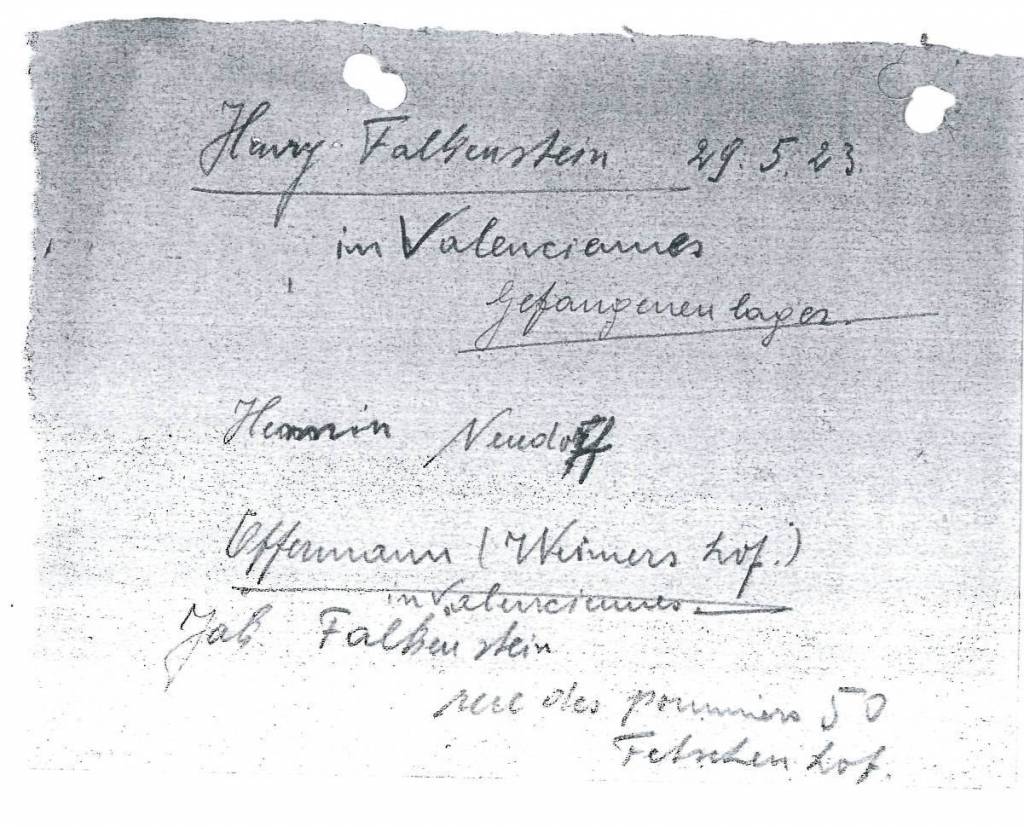 Harry Falkenstein 29.5.23.
in Valenciennes
Gefangenenlager.
Neudorff
Offermann (Weimers hof.)
in Valenciennes.
Jak Falkenstein
rue des pommiers 50
Fetschenhof.